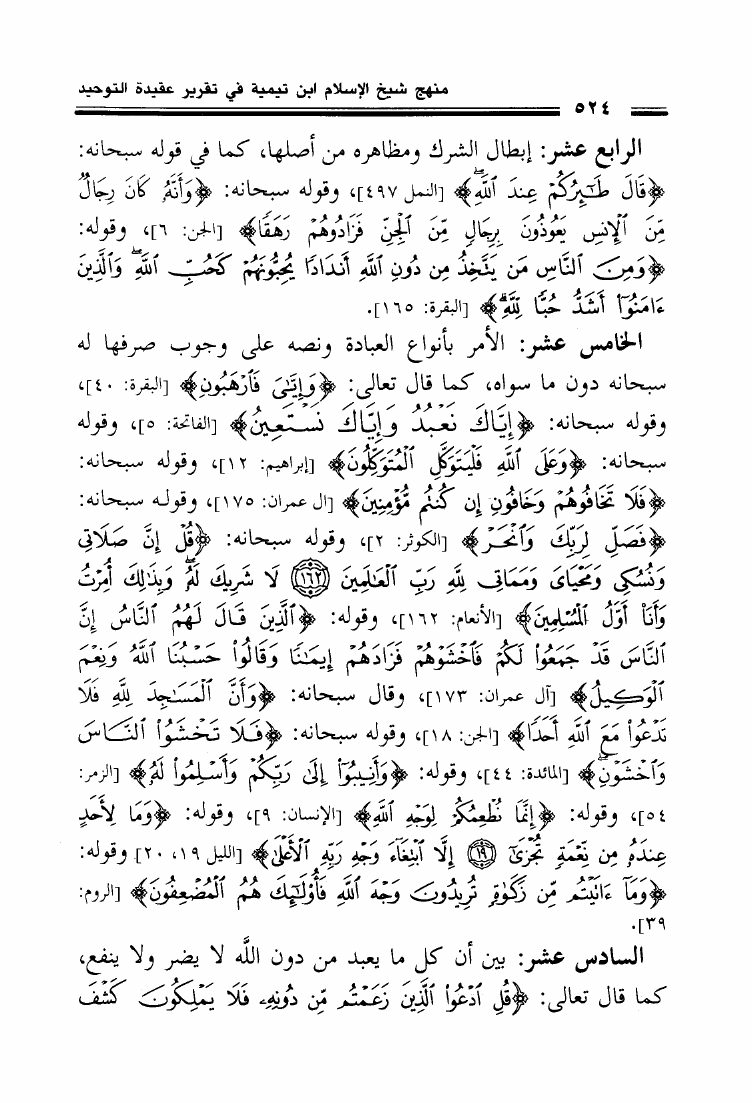 منهج شيخ الإسلام ابن تيمية في تقرير عقيدة التوحيد
٥٢٤
الرابع عشر: إبطال الشرك ومظاهره من أصلها، كما في قوله سبحانه:
﴿قَالَ طَـٰٓئِرُكُمْ عِندَ ٱللَّهِۖ﴾ [النمل ٤٩٧]، وقوله سبحانه: ﴿وَأَنَّهُۥ كَانَ رِجَالٌ
مِّنَ ٱلْإِنسِ يَعُوذُونَ بِرِجَالٍ مِّنَ ٱلْجِنِّ فَزَادُوهُمْ رَهَقًا﴾ [الجن: ٦]، وقوله:
﴿وَمِنَ ٱلنَّاسِ مَن يَتَّخِذُ مِن دُونِ ٱللَّهِ أَندَادًا يُحِبُّونَهُمْ كَحُبِّ ٱللَّهِۖ وَٱلَّذِينَ
ءَامَنُوٓا۟ أَشَدُّ حُبًّا لِّلَّهِۗ﴾ [البقرة: ١٦٥].
الخامس عشر: الأمر بأنواع العبادة ونصه على وجوب صرفها له
سبحانه دون ما سواه، كما قال تعالى: ﴿وَإِيَّـٰىَ فَٱرْهَبُونِ﴾ [البقرة: ٤٠]،
وقوله سبحانه: ﴿إِيَّاكَ نَعْبُدُ وَإِيَّاكَ نَسْتَعِينُ﴾ [الفاتحة: ٥]، وقوله
سبحانه: ﴿وَعَلَى ٱللَّهِ فَلْيَتَوَكَّلِ ٱلْمُتَوَكِّلُونَ﴾ [إبراهيم: ١٢]، وقوله سبحانه:
﴿فَلَا تَخَافُوهُمْ وَخَافُونِ إِن كُنتُم مُّؤْمِنِينَ﴾ [ال عمران: ١٧٥]، وقوله سبحانه:
﴿فَصَلِّ لِرَبِّكَ وَٱنْحَرْ﴾ [الكوثر: ٢]، وقوله سبحانه: ﴿قُلْ إِنَّ صَلَاتِى
وَنُسُكِى وَمَحْيَاىَ وَمَمَاتِى لِلَّهِ رَبِّ ٱلْعَـٰلَمِينَ ١٦٢ لَا شَرِيكَ لَهُۥۖ وَبِذَٰلِكَ أُمِرْتُ
وَأَنَا۠ أَوَّلُ ٱلْمُسْلِمِينَ﴾ [الأنعام: ١٦٢]، وقوله: ﴿ٱلَّذِينَ قَالَ لَهُمُ ٱلنَّاسُ إِنَّ
ٱلنَّاسَ قَدْ جَمَعُوا۟ لَكُمْ فَٱخْشَوْهُمْ فَزَادَهُمْ إِيمَـٰنًا وَقَالُوا۟ حَسْبُنَا ٱللَّهُ وَنِعْمَ
ٱلْوَكِيلُ﴾ [آل عمران: ١٧٣]، وقال سبحانه: ﴿وَأَنَّ ٱلْمَسَـٰجِدَ لِلَّهِ فَلَا
تَدْعُوا۟ مَعَ ٱللَّهِ أَحَدًا﴾ [الجن: ١٨]، وقوله سبحانه: ﴿فَلَا تَخْشَوُا۟ ٱلنَّاسَ
وَٱخْشَوْنِۖ﴾ [المائدة: ٤٤]، وقوله: ﴿وَأَنِيبُوٓا۟ إِلَىٰ رَبِّكُمْ وَأَسْلِمُوا۟ لَهُۥ﴾ [الزمر:
٥٤]، وقوله: ﴿إِنَّمَا نُطْعِمُكُمْ لِوَجْهِ ٱللَّهِ﴾ [الإنسان: ٩]، وقوله: ﴿وَمَا لِأَحَدٍ
عِندَهُۥ مِن نِّعْمَةٍ تُجْزَىٰٓ ١٩ إِلَّا ٱبْتِغَآءَ وَجْهِ رَبِّهِ ٱلْأَعْلَىٰ﴾ [الليل ١٩، ٢٠] وقوله:
﴿وَمَآ ءَاتَيْتُم مِّن زَكَوٰةٍ تُرِيدُونَ وَجْهَ ٱللَّهِ فَأُو۟لَـٰٓئِكَ هُمُ ٱلْمُضْعِفُونَ﴾ [الروم:
٣٩].
السادس عشر: بين أن كل ما يعبد من دون الله لا يضر ولا ينفع،
كما قال تعالى: ﴿قُلِ ٱدْعُوا۟ ٱلَّذِينَ زَعَمْتُم مِّن دُونِهِۦ فَلَا يَمْلِكُونَ كَشْفَ